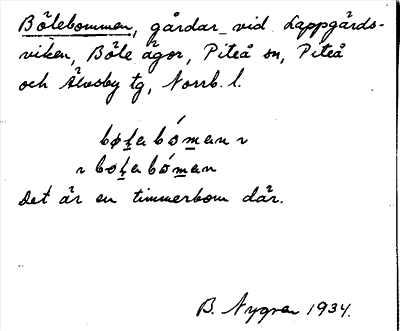 Bölebommen, gårdar vid Lappgårds-
viken, Böle ägor, Piteå sn, Piteå
och Älvsby tg, Norrb. l.
bøḻa bóm̱an ~
~ boḻa bóm̱an
Det är en timmerbom där.
B. Nygren 1934.